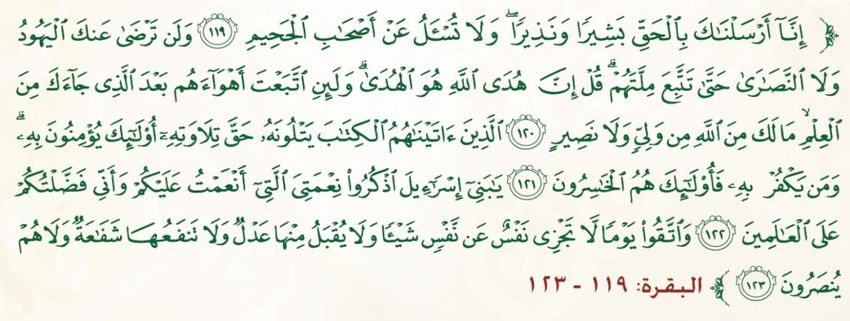 ﴿ إِنَّآ أَرْسَلْنَٰكَ بِٱلْحَقِّ بَشِيرًا وَنَذِيرًا ۖ وَلَا تُسْـَٔلُ عَنْ أَصْحَٰبِ ٱلْجَحِيمِ ١١٩ وَلَن تَرْضَىٰ عَنكَ ٱلْيَهُودُ
وَلَا ٱلنَّصَٰرَىٰ حَتَّىٰ تَتَّبِعَ مِلَّتَهُمْ ۗ قُلْ إِنَّ هُدَى ٱللَّهِ هُوَ ٱلْهُدَىٰ ۗ وَلَئِنِ ٱتَّبَعْتَ أَهْوَآءَهُم بَعْدَ ٱلَّذِى جَآءَكَ مِنَ
ٱلْعِلْمِ ۙ مَا لَكَ مِنَ ٱللَّهِ مِن وَلِىٍّ وَلَا نَصِيرٍ ١٢٠ ٱلَّذِينَ ءَاتَيْنَٰهُمُ ٱلْكِتَٰبَ يَتْلُونَهُۥ حَقَّ تِلَاوَتِهِۦٓ أُو۟لَٰٓئِكَ يُؤْمِنُونَ بِهِۦ ۗ
وَمَن يَكْفُرْ بِهِۦ فَأُو۟لَٰٓئِكَ هُمُ ٱلْخَٰسِرُونَ ١٢١ يَٰبَنِىٓ إِسْرَٰٓءِيلَ ٱذْكُرُوا۟ نِعْمَتِىَ ٱلَّتِىٓ أَنْعَمْتُ عَلَيْكُمْ وَأَنِّى فَضَّلْتُكُمْ
عَلَى ٱلْعَٰلَمِينَ ١٢٢ وَٱتَّقُوا۟ يَوْمًا لَّا تَجْزِى نَفْسٌ عَن نَّفْسٍ شَيْـًٔا وَلَا يُقْبَلُ مِنْهَا عَدْلٌ وَلَا تَنفَعُهَا شَفَٰعَةٌ وَلَا هُمْ
يُنصَرُونَ ١٢٣ ﴾ البقرة: ١١٩ - ١٢٣